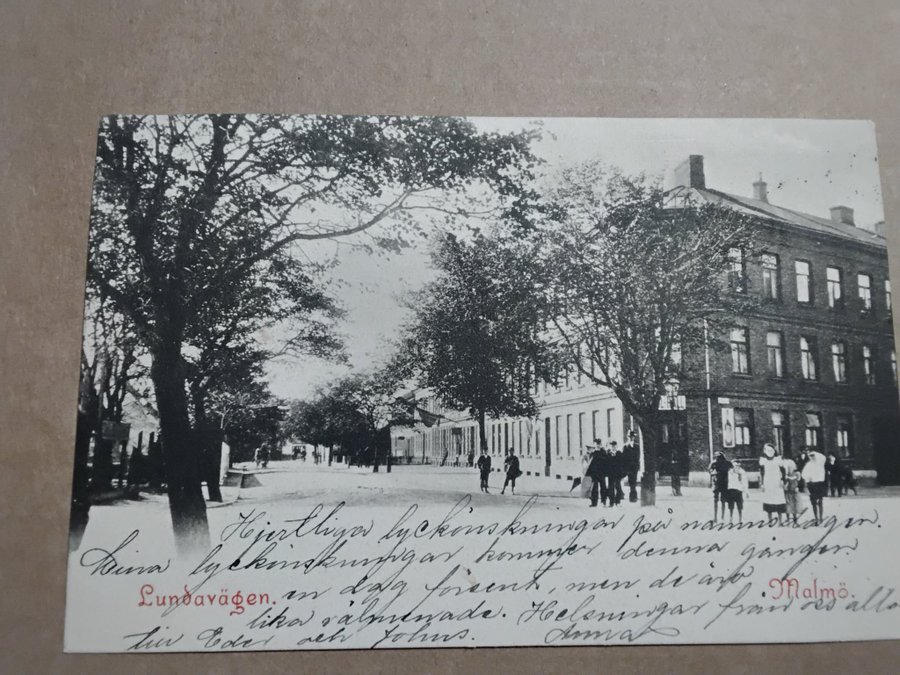 Hjertliga lyckönskningar på namnsdagen.
Mina lyckönskningar kommer denna gången
en dag försent, men de äro
lika välmenade. Helsningar från oss alla
till Eder och Johns. Anna
Lundavägen.
Malmö.